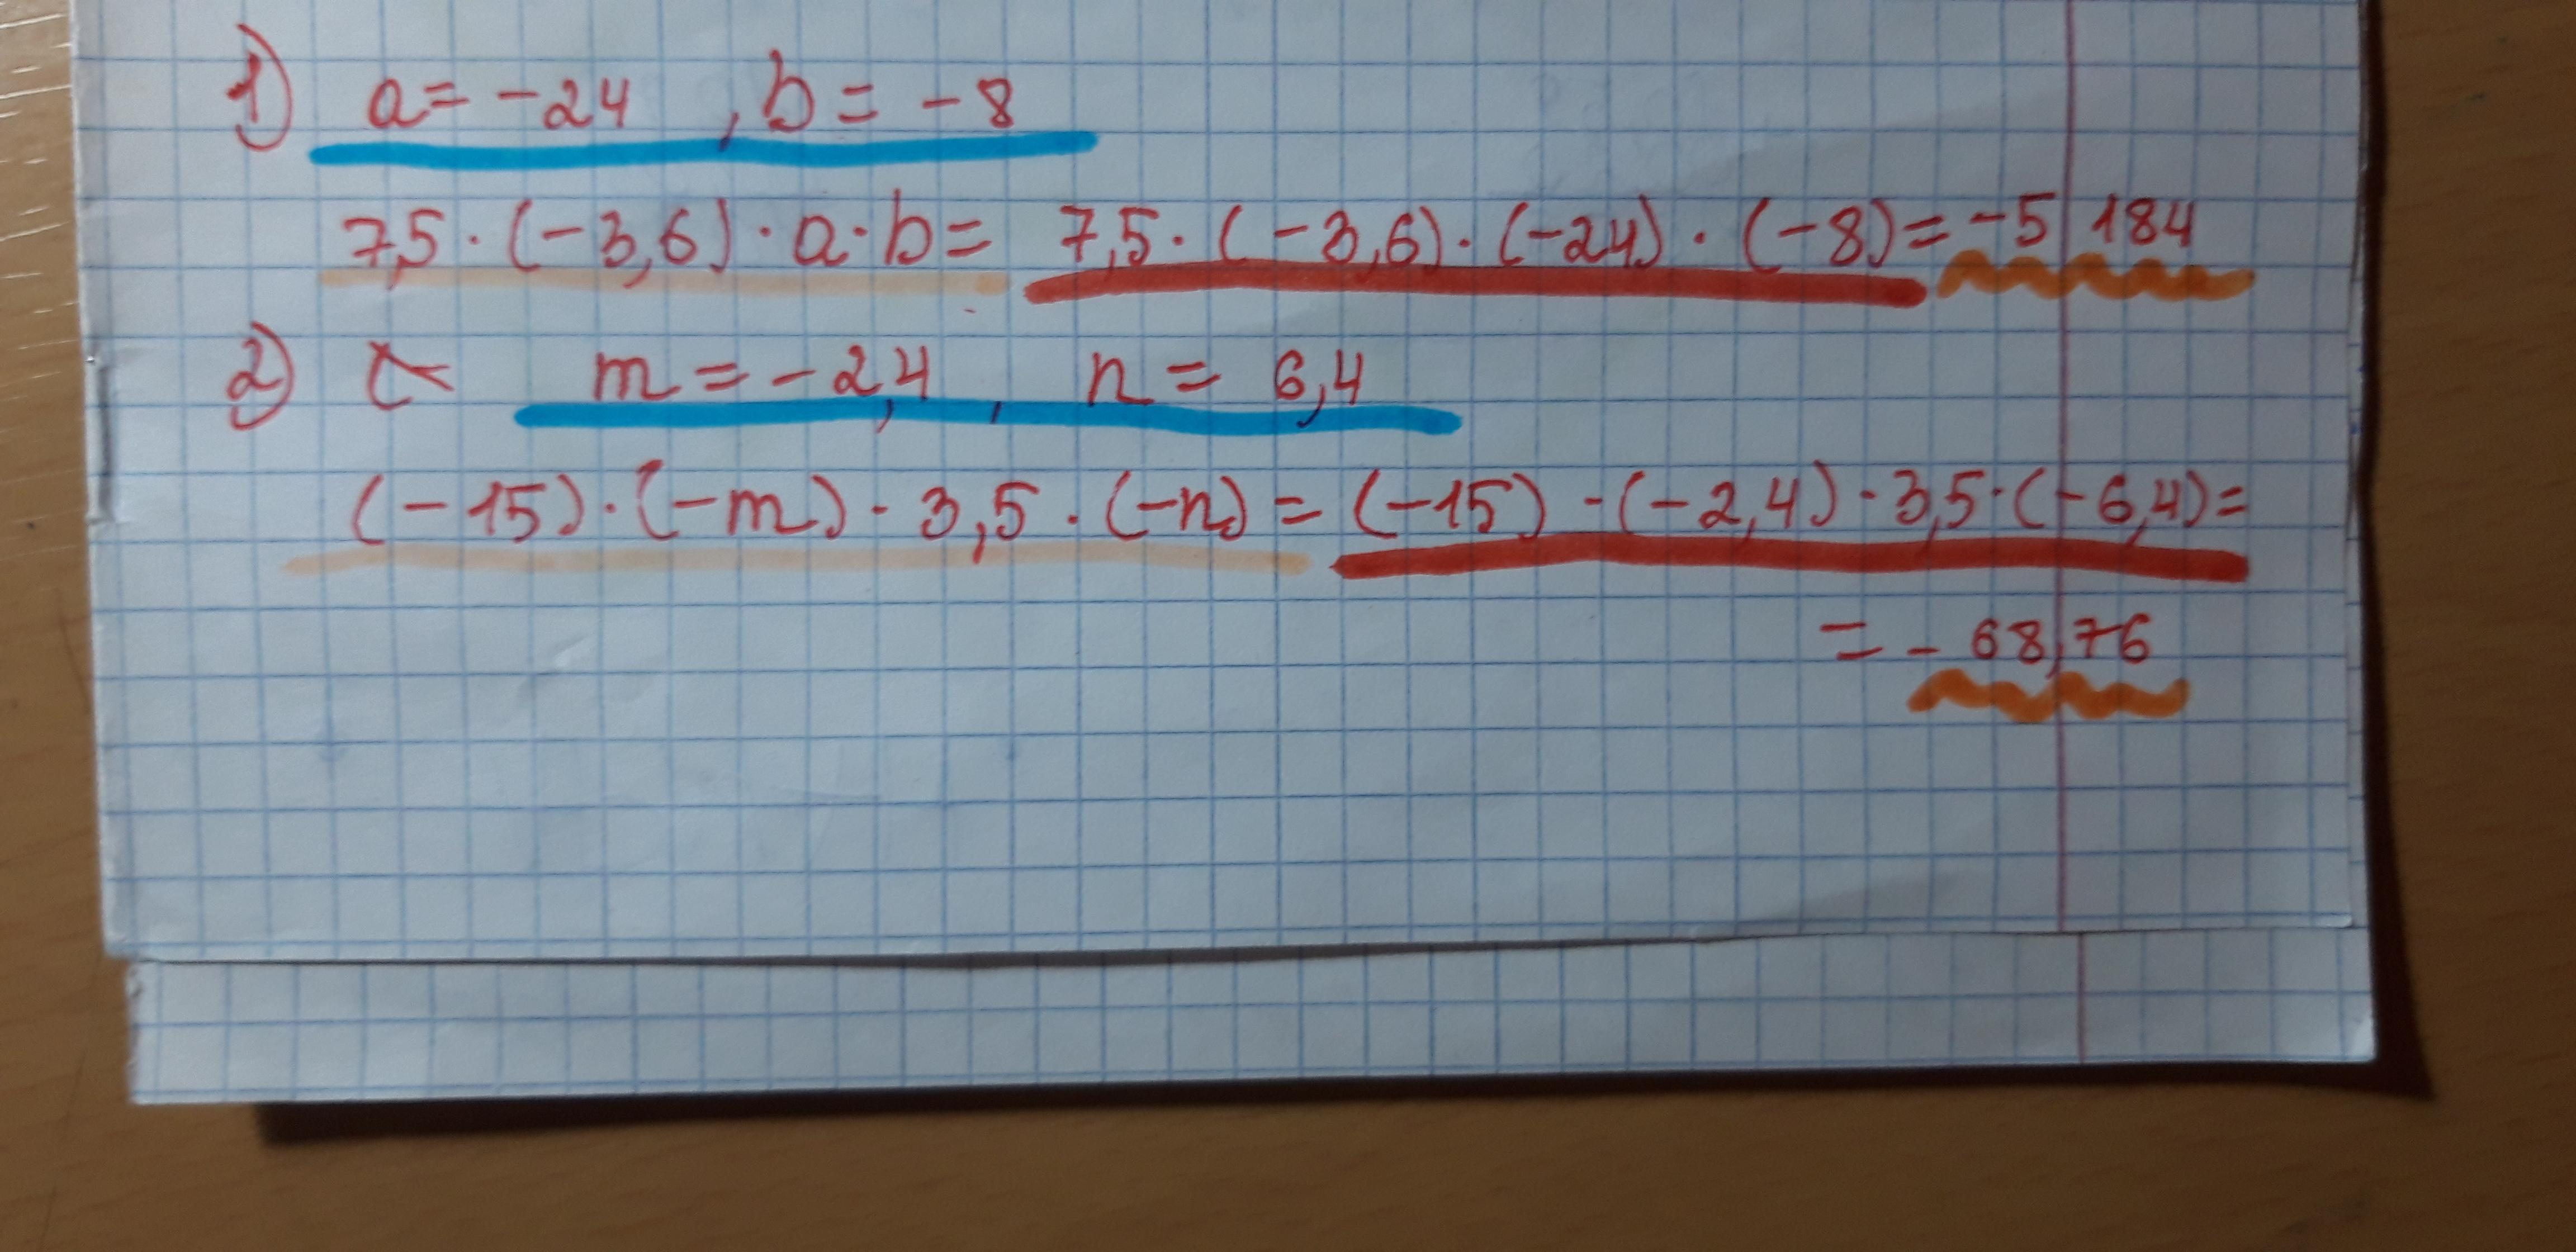 1) a= -24 , b= -8
7,5·(-3,6)·a·b= 7,5·(-3,6)·(-24)·(-8)=-5 184
2) m=-2,4 , n= 6,4
(-15)·(-m)·3,5·(-n)=(-15)·(-2,4)·3,5·(-6,4)=
=- 68,76